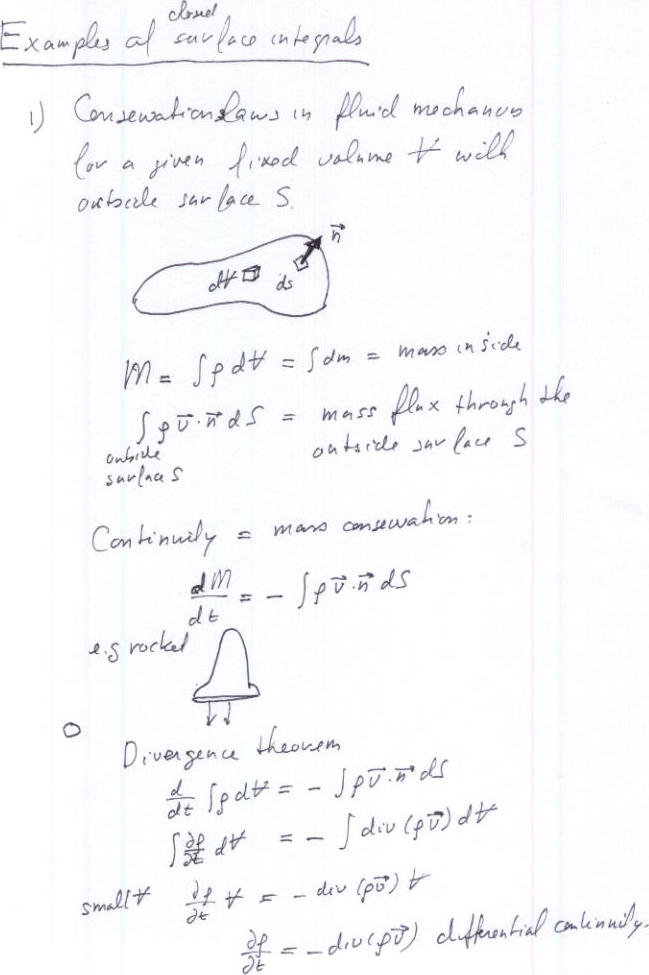 Examples of closed surface integrals
1) Conservation laws in fluid mechanics
for a given fixed volume V with
outside surface S.
n⃗
dV dS
M = ∫ρ dV = ∫dm = mass inside
∫ρ v⃗·n⃗ dS = mass flux through the
outside surface S
outside
surface S
Continuity = mass conservation:
dM/dt = - ∫ρ v⃗·n⃗ dS
e.g rocket
Divergence theorem
d/dt ∫ρ dV = - ∫ρ v⃗·n⃗ dS
∫∂ρ/∂t dV = - ∫div (ρv⃗) dV
small V ∂ρ/∂t V = - div (ρv⃗) V
∂ρ/∂t = - div (ρv⃗) differential continuity.